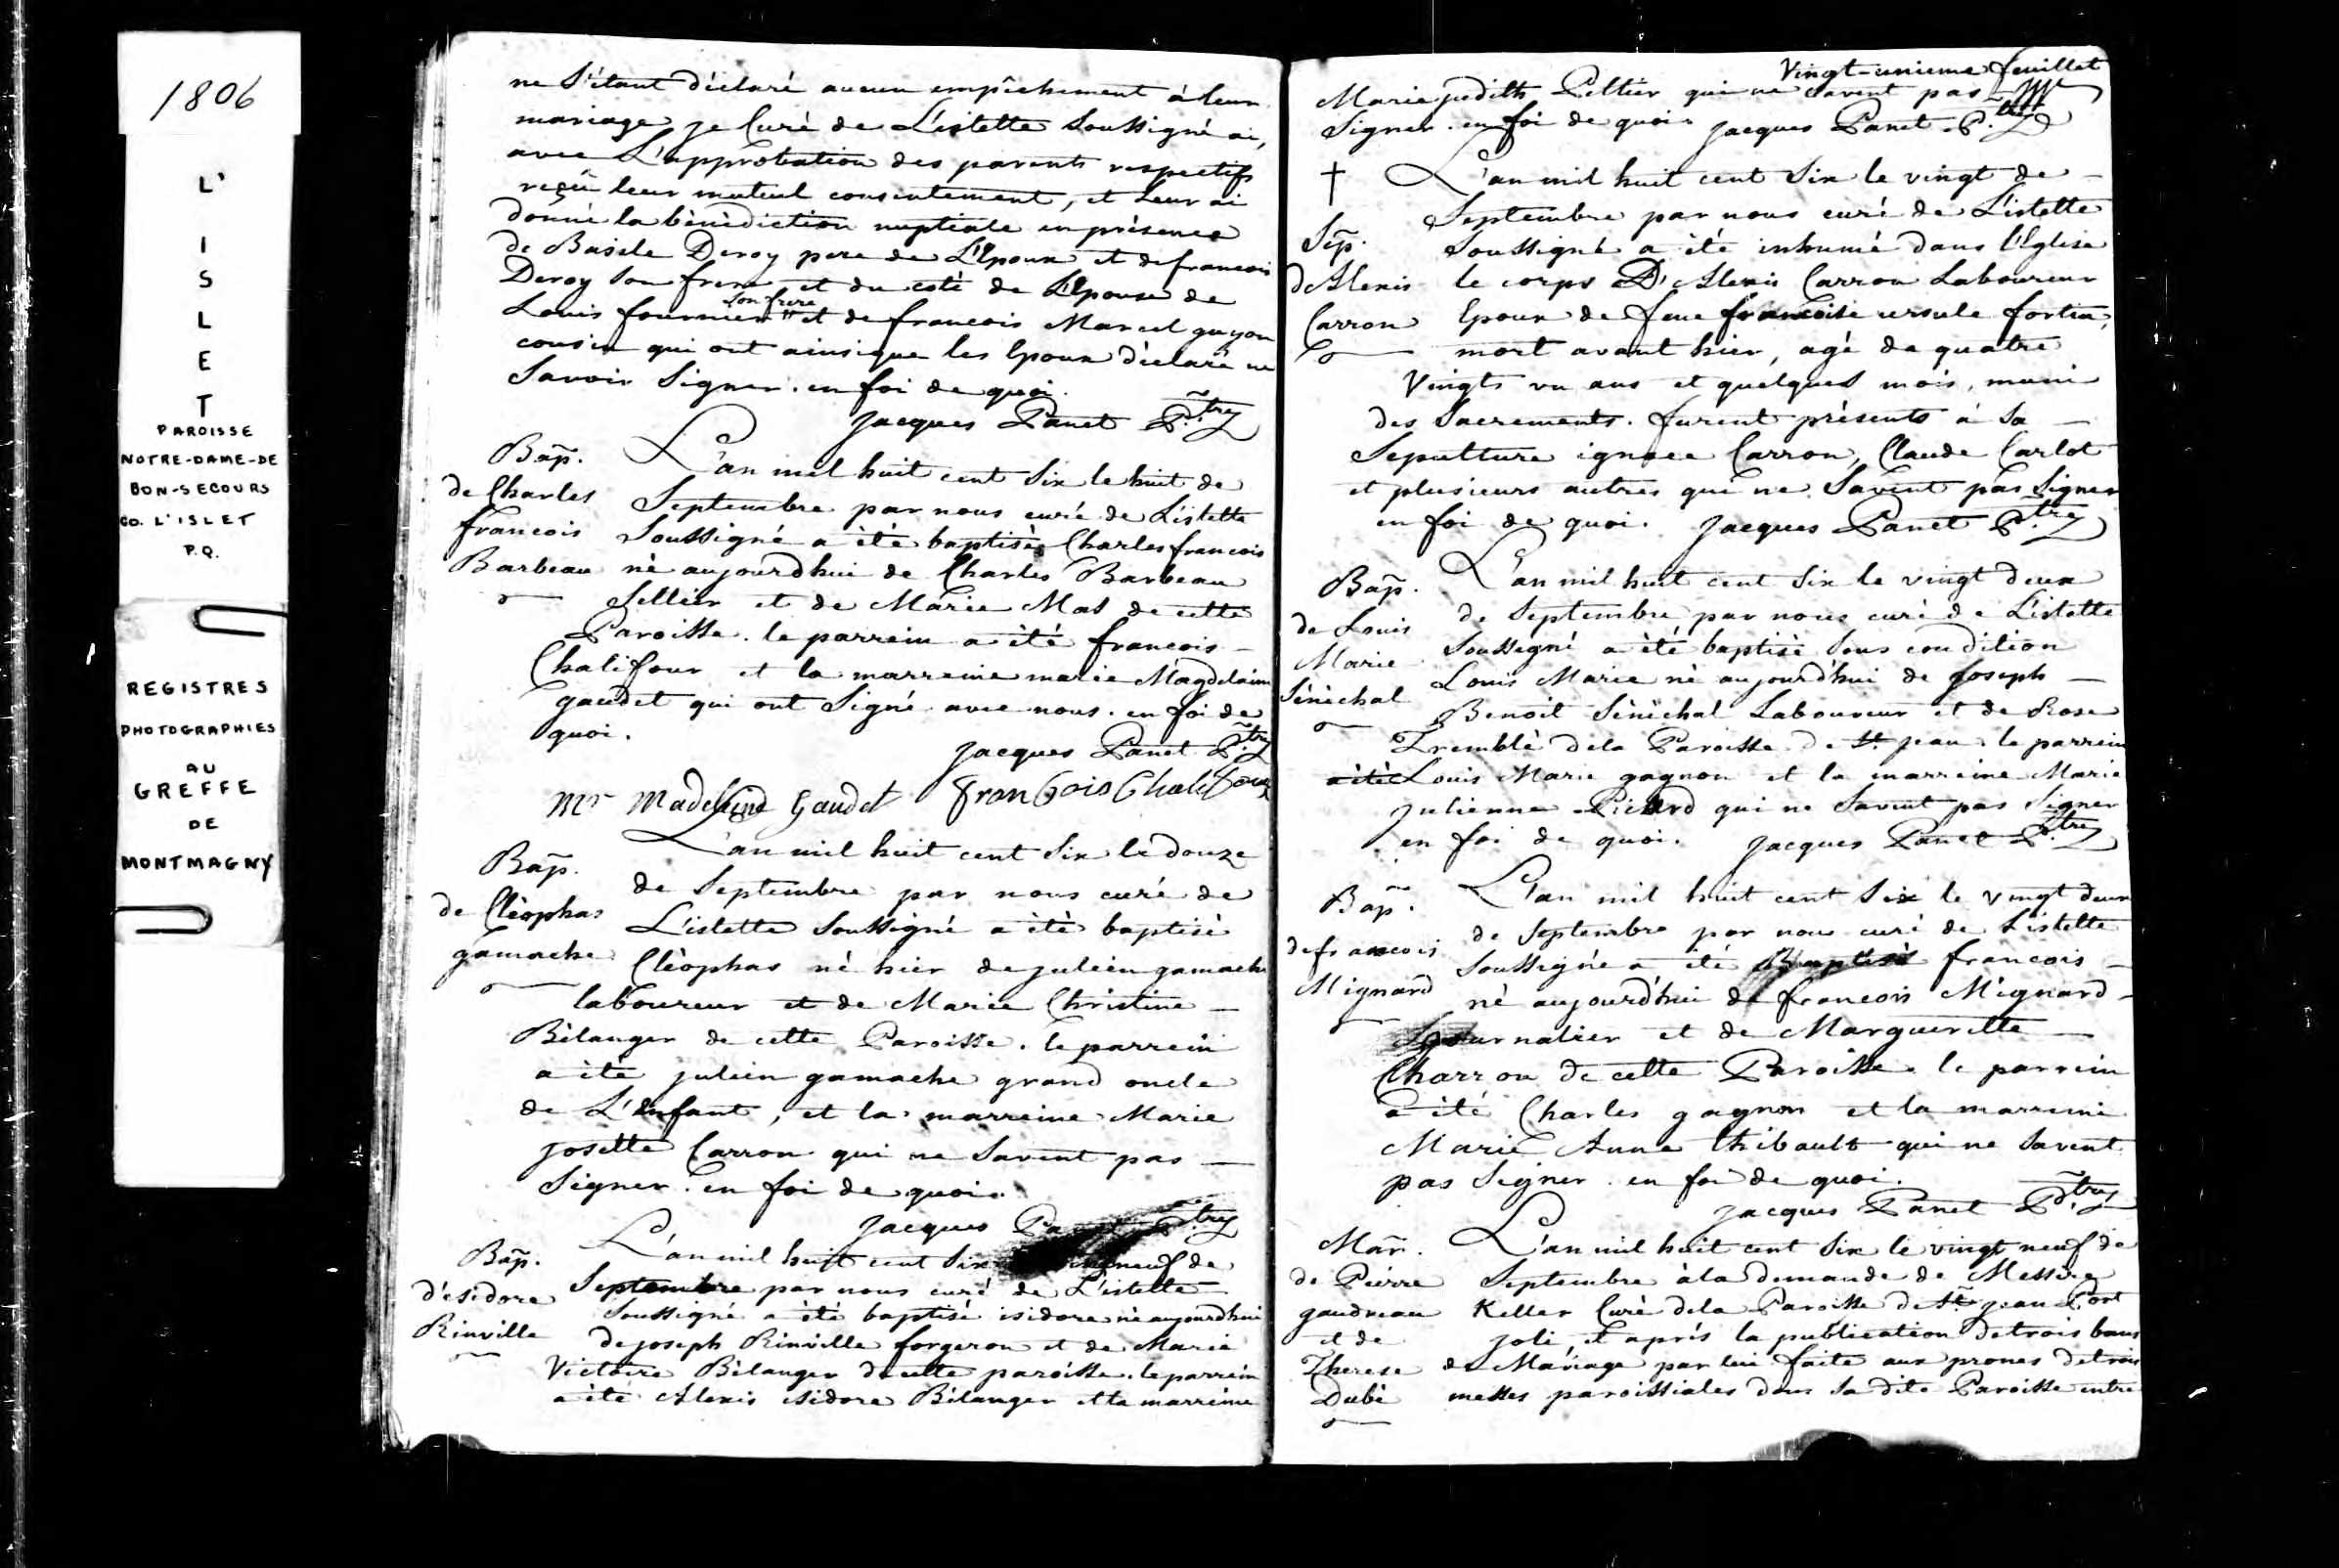 1806
L'
I
S
L
E
T
PAROISSE
NOTRE-DAME-DE
BON-SECOURS
CO. L'ISLET
P.Q.
REGISTRES
PHOTOGRAPHIES
AU
GREFFE
DE
MONTMAGNY
ne s'étant déclaré aucun empîchement à leur
mariage je Curé de L'islette soussigné ai,
avec L'approbation des parents respectifs
reçû leur mutuel consentement, et leur ai
donné la bénédiction nuptiale en présence
de Basile Deroy pere de L'Epoux et de francois
Deroy son frere et du coté de L'Epouse de
Louis fournier son frere et de francois Marcel guyon
cousin qui ont ainsi que les Epoux déclaré ne
Savoir Signer. en foi de quoi.
Jacques Panet P.tre
Bap. L'an mil huit cent Six le huit de
de Charles Septembre par nous curé de L'islette
francois Soussigné a été baptisé Charles francois
Barbeau né aujourdhui de Charles Barbeau
Sellier et de Marie Mas de cette
Paroisse. le parrein a été francois
Chalifour et la marreine marie Magdelaine
gaudet qui ont Signé avec nous. en foi de
quoi.
Jacques Panet P.tre
Mr Madeleine Gaudet François Chalifour
Bap. L'an mil huit cent Six le douze
de Septembre par nous curé de
de Cléophas L'islette Soussigné a été baptisé
gamache Cléophas né hier de julien gamache
laboureur et de Marie Christine
Bélanger de cette Paroisse. le parrein
a été julien gamache grand oncle
de L'enfant, et la marreine Marie
josette Carron qui ne Savent pas
Signer. en foi de quoi.
Jacques Panet P.tre
Bap. L'an mil huit cent Six neuf de
d'isidore Septembre par nous curé de L'islette
Soussigné a été baptisé isidore né aujourdhui
Rinville de joseph Rinville forgeron et de Marie
Victoire Bélanger de cette paroisse. le parrein
a été Alexis isidore Bélanger et la marreine
Vingt-unieme feuillet
Marie judith Peltier qui ne Savent pas
Signer. en foi de quoi. Jacques Panet P.tre
† L'an mil huit cent Six le vingt de
Septembre par nous curé de L'islette
Sep. Soussigné a été inhumé dans l'Eglise
d'Alexis le corps D'Alexis Carron Laboureur
Carron Epoux de feue francoise ursule fortin,
mort avant hier, agé de quatre
Vingts un ans et quelques mois, muni
des Sacrements. furent présents à Sa
Sepulture ignace Carron, Claude Carlot
et plusieurs autres qui ne Savent pas Signer
en foi de quoi. Jacques Panet P.tre
Bap. L'an mil huit cent Six le vingt deux
de Septembre par nous curé de L'islette
de Louis Soussigné a été baptisé Sous condition
Marie Louis Marie né aujourd'hui de joseph
Sénéchal Benoit Sénéchal Laboureur et de Rose
Tremblé dela Paroisse de St. jean. le parrein
a été Louis Marie gagnon et la marreine Marie
julienne Picard qui ne Savent pas Signer
en foi de quoi. Jacques Panet P.tre
Bap. L'an mil huit cent Six le vingt deux
de Septembre par nous curé de L'islette
de francois Soussigné a été Baptisé francois
Mignard né aujourd'hui de francois Mignard
Journalier et de Margueritte
Charron de cette Paroisse. le parrein
a été Charles gagnon et la marreine
Marie Anne Thibault qui ne Savent
pas Signer. en foi de quoi.
Jacques Panet P.tre
Mar. L'an mil huit cent Six le vingt neuf de
de Pierre Septembre à la demande de Messire
gaudreau Keller Curé dela Paroisse de St. jean Port
et de joli, et après la publication de trois bans
Therese de Mariage par lui faite aux prones de trois
Dubé messes paroissiales dans Sa dite Paroisse entre